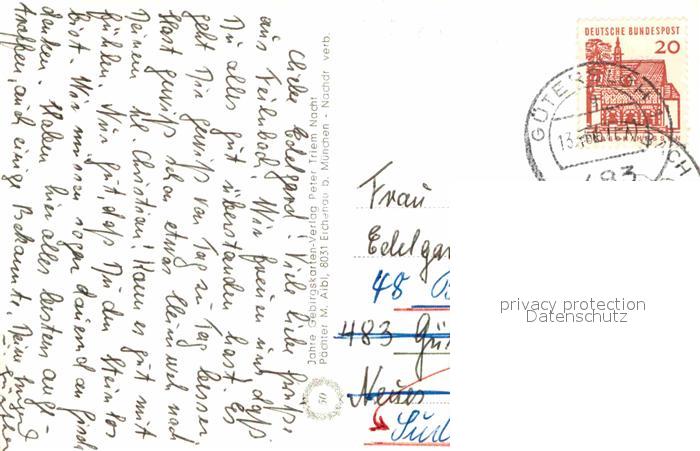 Liebe Edelgard! Viele liebe Grüße
aus Feilnbach! Wir freuen uns, daß
Du alles gut überstanden hast! Es
geht Dir gewiß von Tag zu Tag besser,
hast gewiß schon etwas Heimweh nach
Deinem kl. Christian! Kann es gut mit
fühlen. Nur gut, daß Du den Stein los
bist. Wir müssen sogar dauernd an
denken. Haben hier alles bestens ange-
troffen, auch einige Bekannte. Deine
Jahre Gebirgskarten-Verlag Peter Triem Nacht
Pächter M. Aibl, 8031 Eichenau b. München - Nachdr verb.
50
DEUTSCHE BUNDESPOST
20
GÜTERSLOH
483
Frau
Edelgar
48
483 Gü
Neues
privacy protection
Datenschutz